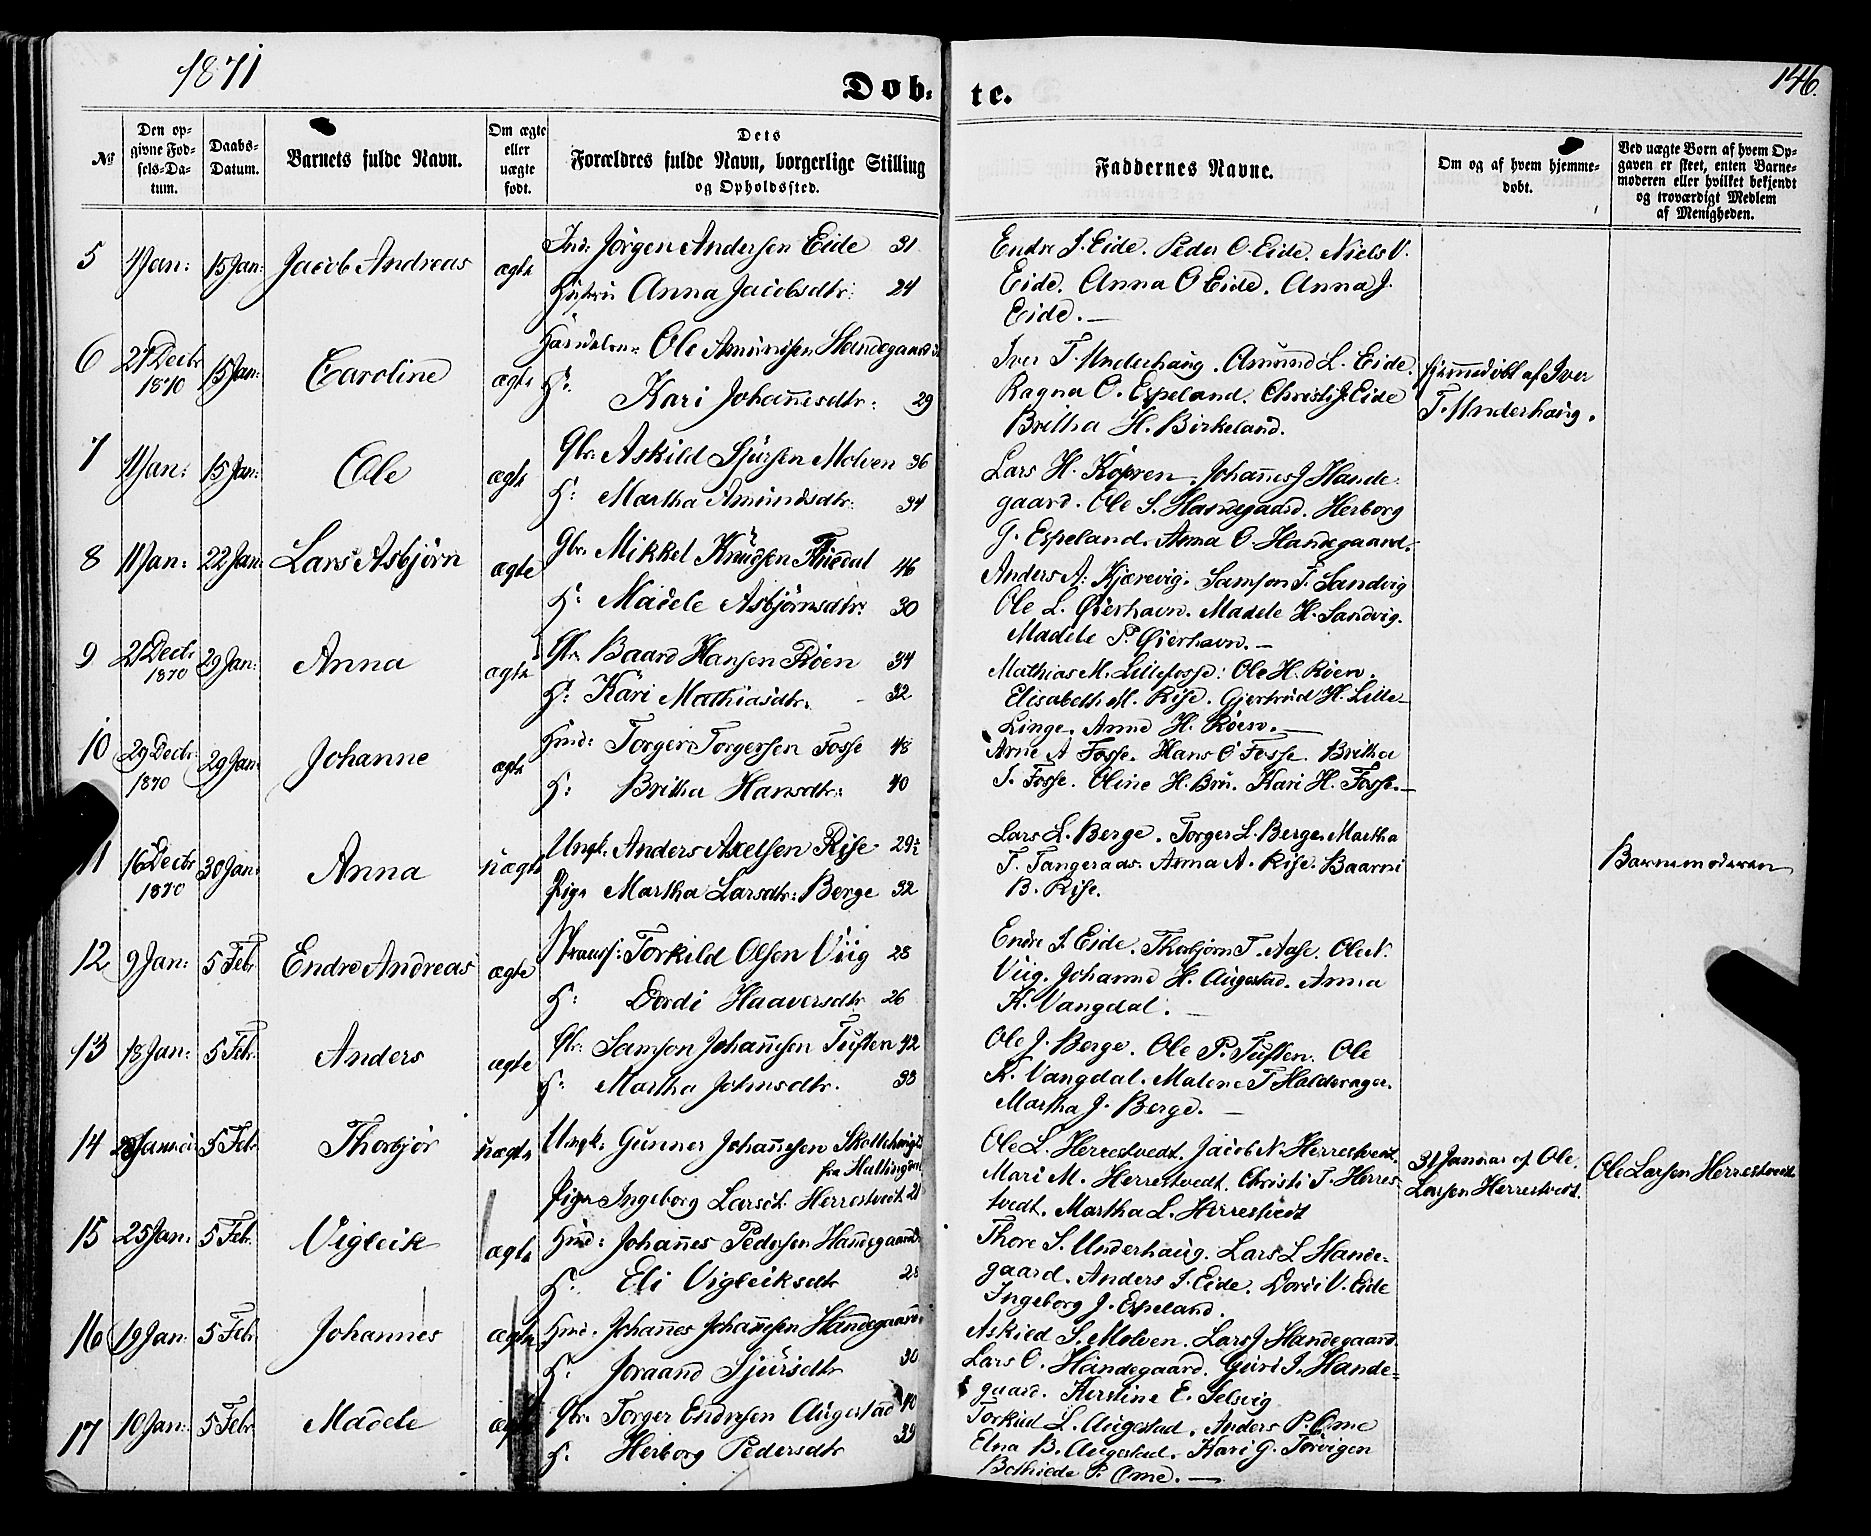 1871
Døb-
te.
146.
№
Den op-
givne Fød-
sels-Da-
tum.
Daabs-
Datum.
Barnets fulde Navn.
Om ægte
eller
uægte
født.
Dets
Forældres fulde Navn, borgerlige Stilling
og Opholdssted.
Faddernes Navne.
Om og af hvem hjemme-
døbt.
Ved uægte Børn af hvem Op-
gaven er skeet, enten Barne-
moderen eller hvilket bekjendt
og troværdigt Medlem
af Menigheden.
5 1 Jan: 15 Jan: Jacob Andreas ægte
Ind: Jörgen Andersen Eide 31
Hustru Anna Jacobsdtr: 24
Endre J. Eide. Peder O. Eide. Niels V.
Eide. Anna O Eide. Anna J.
Eide. —
6 21 Decbr 1870 15 Jan: Caroline ægte
Ole Amundsen Handegaard
H: Kari Johannesdtr: 29
Iver T. Underhaug. Amund L. Eide.
Ragna O. Espeland. Christi J. Eide
Britha H. Birkeland.
hjemmedöbt af Iver
T. Underhaug.
7 1 Jan: 15 Jan: Ole ægte
Gbr. Askild Sjursen Molven 36
H: Martha Amundsdtr: 34
Lars H. Kopren. Johannes J Hande-
gaard. Ole S. Handegaard. Herborg
G. Espeland. Anna O. Handegaard.
8 11 Jan: 22 Jan: Lars Asbjörn ægte
Gbr. Mikkel Knudsen 46
H: Madele Asbjörnsdtr: 30
Anders A. Kjærevig. Samson T. Sandvig
Ole L. Österhavn. Madele H. Sandvig.
Madele P. Österhavn. —
9 21 Decbr 1870 29 Jan: Anna ægte
Gbr. Baard Hansen Röen 34
H: Kari Mathiasdtr: 32
Mathias M. Lillefosse: Ole H. Röen.
Elisabeth M. Rise. Gjertrud H. Lille-
Linge. Anna H. Röen. —
10 29 Decbr: 1870 29 Jan: Johanne ægte
Hmd: Torger Torgersen Fosse 48
H: Britha Hansdtr: 40
Arne A Fosse. Hans O Fosse. Britha
S. Fosse. Oline H. Bru. Kari H. Fosse. —
11 16 Decbr 1870 30 Jan: Anna uægte
Ungk. Anders Axelsen Rise 29
Pige Martha Larsdtr: Berge 32
Lars L. Berge. Torger L. Berge. Martha
T. Tangeraas. Anna A. Rise. Baarni
B. Rise.
Barnemoderen
12 9 Jan: 5 Febr Endre Andreas ægte
Torkild Olsen Viig 28
H: Dordi Haaversdtr 26
Endre J. Eide. Thorbjörn T. Aase. Ole N.
Viig. Johanne H. Augestad. Anna
K. Vangdal. —
13 18 Jan: 5 Febr. Anders ægte
Gbr. Samson Johannesen Tuften 42
H: Martha Johnsdtr. 33
Ole J. Berge. Ole P. Tuften. Ole
K. Vangdal. Malene T Haldorager.
Martha J. Berge. —
14 5 Febr Thorbjör uægte
Ungk: Gunner Johannesen
fra
Pige Ingeborg Larsdt. Herrestvedt 21
Ole L. Herrestvedt. Jacob N. Herrestvedt.
Mari M. Herrestvedt. Christi T. Herres-
tvedt. Martha L. Herrestvedt
31 Januar af Ole
Larsen Herrestvedt.
Ole Larsen Herrestvedt
15 25 Jan: 5 Febr. Vigleik ægte
Hmd: Johannes Pedersen Handegaard
H: Eli Vigleiksdtr 28
Thore S. Underhaug. Lars L Hande-
gaard. Anders J. Eide. Dordi V. Eide
Ingeborg J. Espeland.
16 19 Jan: 5 Febr Johannes ægte
Hmd. Johannes Johannesen Handegaard
H: Joraand Sjursdtr 30
Askild S. Molven. Lars J Handegaard.
Lars O. Handegaard. Guri J. Hande-
gaard. Kerstine E. Selsvig
17 10 Jan: 5 Febr Madele ægte
Gbr. Torger Endresen Augestad 40
H: Herborg Pedersdtr 39
Torkild L. Augestad. Anders P. Ome
Elna B. Augestad. Kari G. Torvigen
Bothilde P. Ome. —